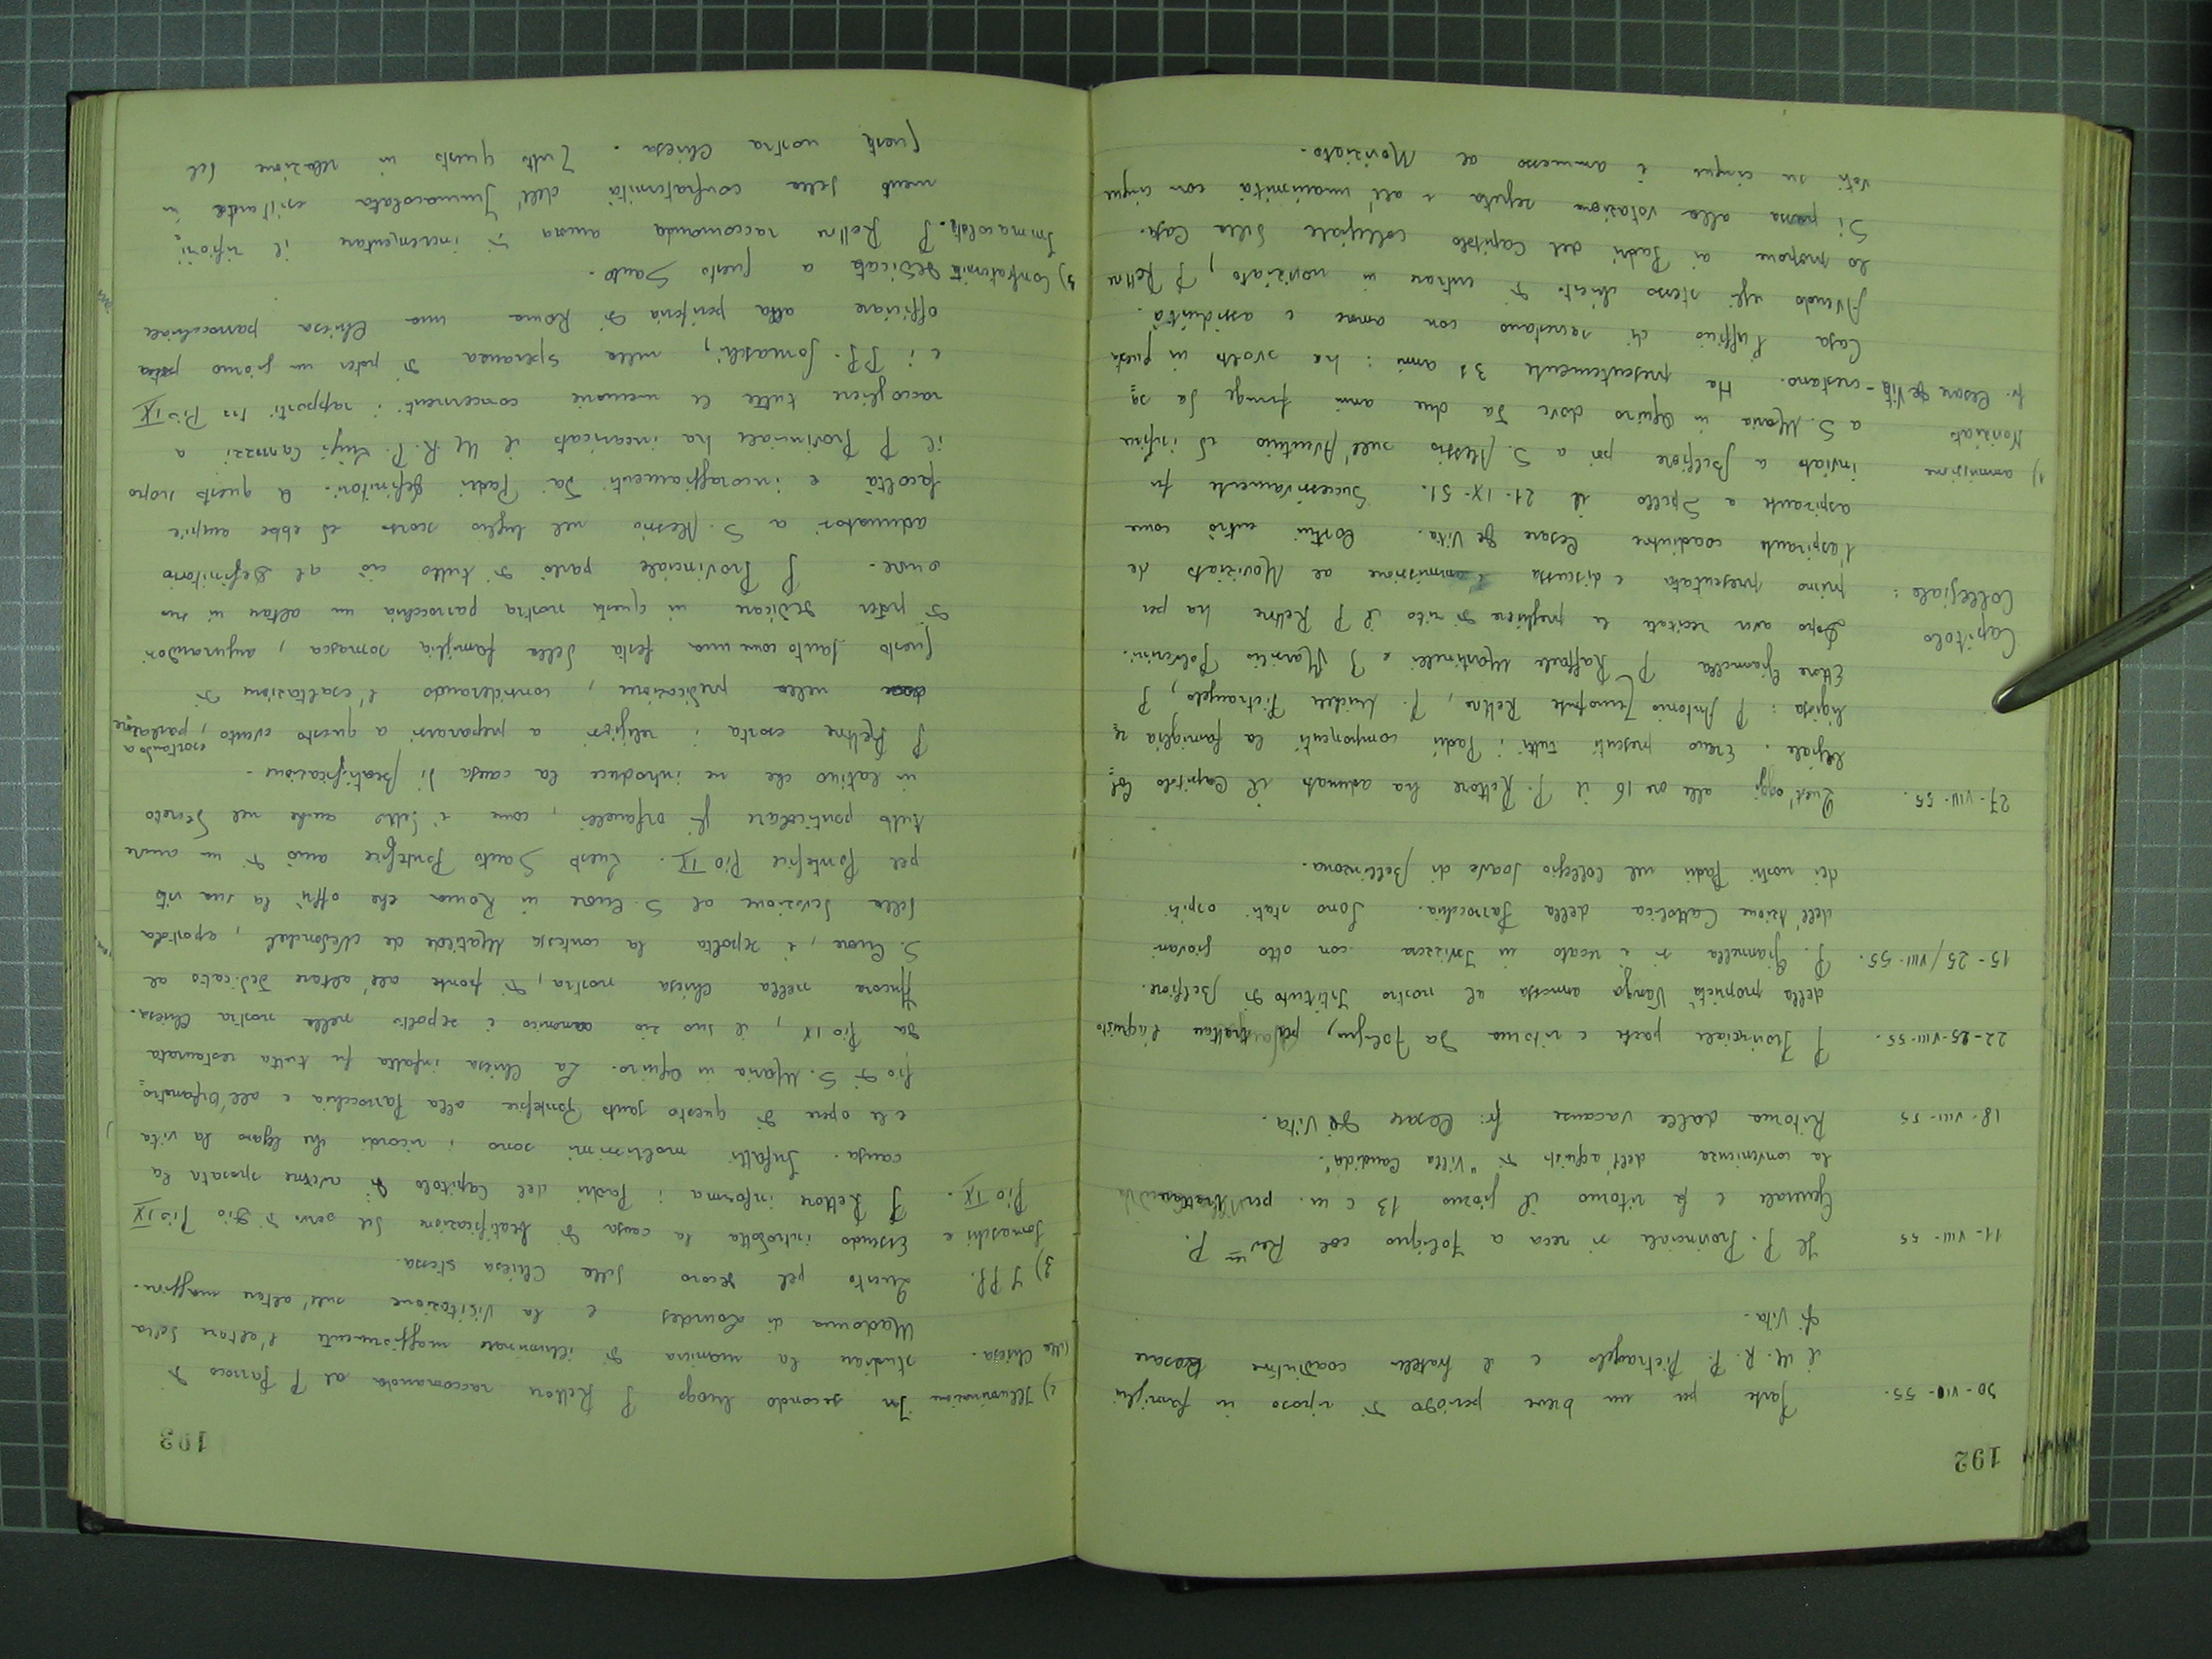 192
30-VII-55. Parte per un breve periodo di riposo in famiglia
il M. R. P. Pietrangelo e il fratello coadiutore Cesare
di Vita.
11-VIII-55 Il P. Provinciale si reca a Foligno col Rev.mo P.
Generale e fa ritorno il giorno 13 c. m. per trattare
la convenienza dell'aquisto di "Villa Candida".
18-VIII-55 Ritorna dalle vacanze fr: Cesare di Vita.
22-25-VIII-55. P. Provinciale parte e ritorna da Foligno, per trattare l'aquisto
della proprietà Vanga annessa al nostro Istituto di Belfiore.
15-25/VIII-55. P. Giannella si è recato in Isvizzera con otto giovani
dell'Azione Cattolica della Parrocchia. Sono stati ospiti
dei nostri Padri nel Collegio Soave di Bellinzona.
27-VIII-55. Quest'oggi alle ore 16 il P. Rettore ha adunato il Capitolo Col
legiale. Erano presenti tutti i Padri componenti la famiglia re
ligiosa: P. Antonio Temofonte, Rettore, P. Michele Pietrangelo, P.
Ettore Giannella P. Raffaele Martinelli e P. Marsilio Polverini.
Capitolo Dopo aver recitate le preghiere di rito il P. Rettore ha per
Collegiale: primo presentata e discussa l'ammissione al Noviziato de
l'aspirante coadiutore Cesare De Vita. Costui entrò come
aspirante a Spello il 21-IX-51. Successivamente fu
1) ammissione inviato a Belfiore poi a S. Alessio sull'Aventino ed infine
Noviziato a S. Maria in Aquiro dove da due anni funge da sa
fr. Cesare De Vita - crestano. Ha presentemente 31 anni: ha svolto in questa
Casa l'ufficio di sacrestano con amore e assiduità.
Avendo egli stesso chiesto di entrare in noviziato, P. Rettore
lo propone ai Padri del Capitolo Collegiale della Casa.
Si passa alla votazione segreta e all'unanimità con cinque
voti su cinque è ammesso al Noviziato.
193
2) Illuminazione In secondo luogo P. Rettore raccomanda al P. Parroco di
della Chiesa. studiare la maniera di illuminare maggiormente l'altare della
Madonna di Lourdes e la Visitazione sull'altare maggiore.
Questo pel decoro della Chiesa stessa.
3) I PP. Somaschi e Essendo introdotta la causa di beatificazione del servo di Dio Pio IX
Pio IX. P. Rettore informa i Padri del Capitolo di averne sposata la
causa. Infatti moltissimi sono i ricordi che legano la vita
e le opere di questo santo Pontefice alla Parrocchia e all'Orfanotro
fio di S. Maria in Aquiro. La Chiesa infatti fu tutta restaurata
da Pio IX, il suo zio canonico è sepolto nella nostra Chiesa.
Ancora nella Chiesa nostra, di fronte all'altare dedicato al
S. Cuore, è sepolta la contessa Matilde de Nédonchel, apostola
della devozione al S. Cuore in Roma che offrì la sua vita
pel Pontefice Pio IX. Questo Santo Pontefice amò di un amore
tutto particolare gli orfanelli, come è detto anche nel Decreto
in latino che ne introduce la causa di beatificazione.
P. Rettore esorta i religiosi a prepararsi a questo evento, esortando a parlarne
nella predicazione, considerando l'esaltazione di
questo Santo come una festa della famiglia somasca, augurandosi
di poter dedicare in questa nostra parrocchia un altare in suo
onore. P. Provinciale parlò di tutto ciò al Definitorio
adunatosi a S. Alessio nel luglio scorso ed ebbe ampie
facoltà e incoraggiamenti dai Padri definitori. A questo scopo
il P. Provinciale ha incaricato il M. R. P. Luigi Carrozzi a
raccogliere tutte le memorie concernenti i rapporti tra Pio IX
e i PP. Somaschi, nella speranza di poter un giorno
officiare alla periferia di Roma una Chiesa parrocchiale
dedicata a questo Santo.
3) Confraternità Immacolata. P. Rettore raccomanda ancora di incrementare il rifiori
mento della confraternità dell'Immacolata esistente in
questa nostra Chiesa. Tutto questo in relazione del